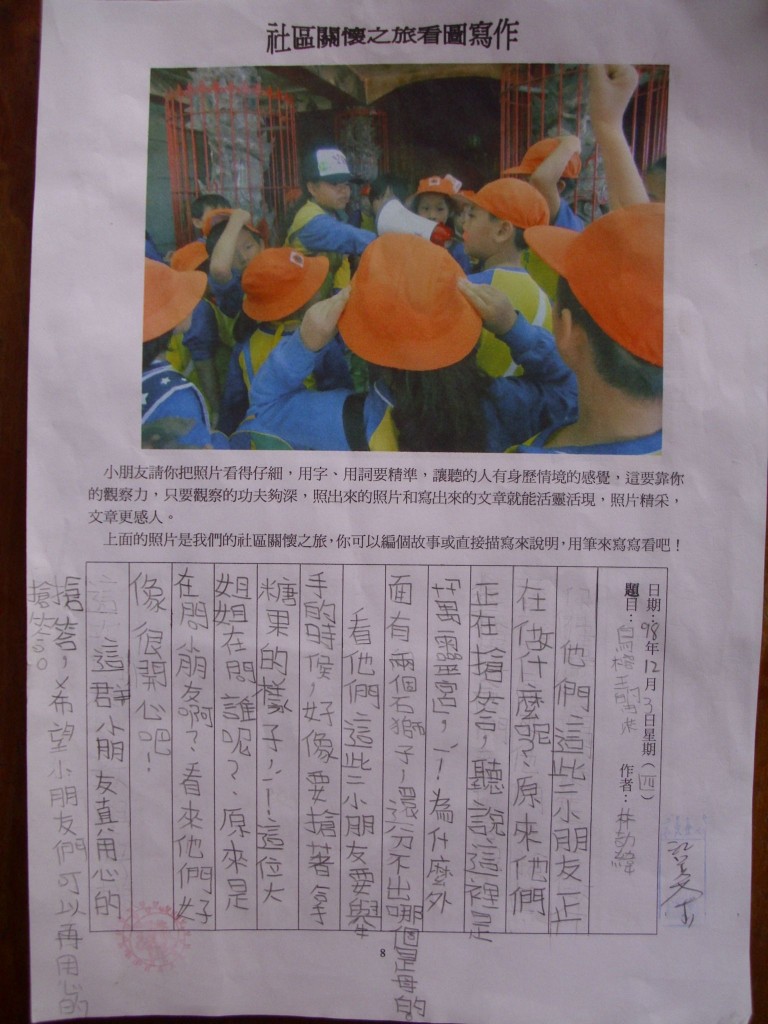 社區關懷之旅看圖寫作
小朋友請你把照片看得仔細，用字、用詞要精準，讓聽的人有身歷情境的感覺，這要靠你
的觀察力，只要觀察的功夫夠深，照出來的照片和寫出來的文章就能活靈活現，照片精采，
文章更感人。
上面的照片是我們的社區關懷之旅，你可以編個故事或直接描寫來說明，用筆來寫寫看吧！
日期：98年12月3日星期（四）
題目： 作者：林
他們這些小朋友正
在做什麼呢？原來他們
正在搶答，聽說這裡是
「萬靈宮」，！為什麼外
面有兩個石獅子，還分不出哪個是母的
看他們這些小朋友要舉
手的時候，好像要搶著拿
糖果的樣子，！這位大
姐姐在問誰呢？原來是
在問小朋友啊？看來他們好
像很開心吧！
這群小朋友真用心的
搶答，希望小朋友們可以再用心的
搶答。
8